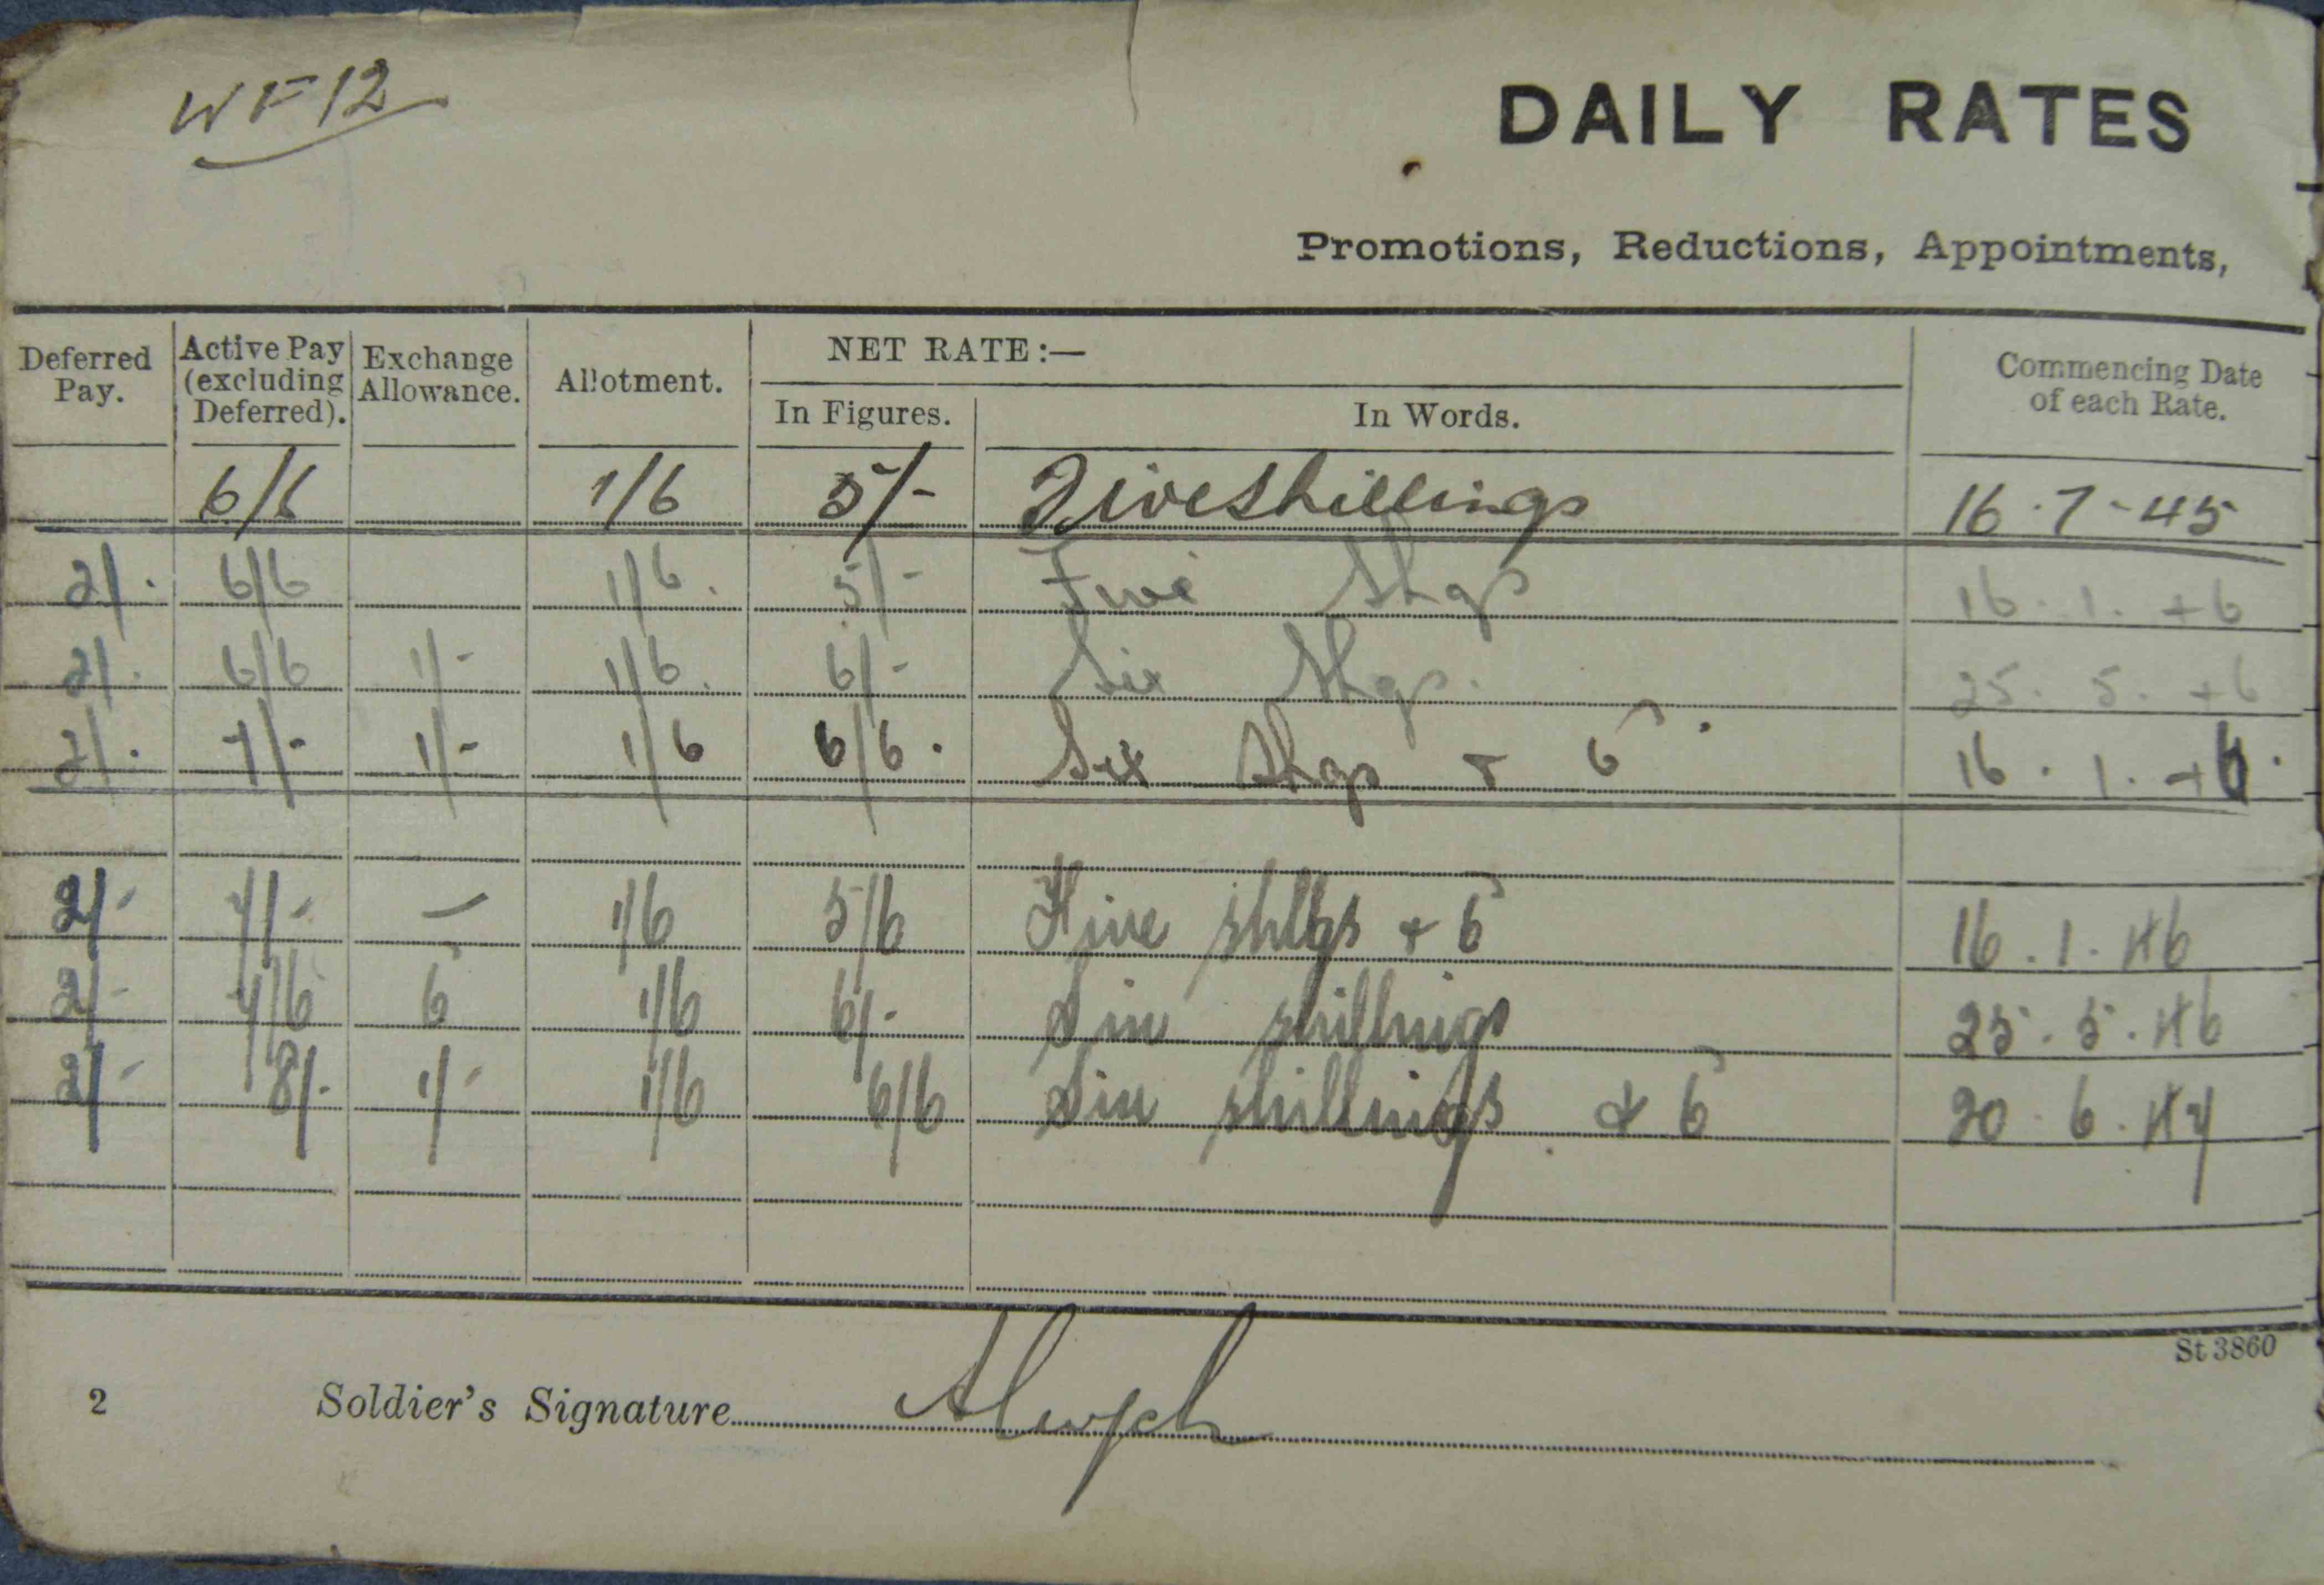 WF12
DAILY RATES
Promotions, Reductions, Appointments,
Deferred Pay. Active Pay (excluding Deferred). Exchange Allowance. Allotment. NET RATE :— Commencing Date of each Rate.
In Figures. In Words.
6/6 1/6 5/- Five Shillings 16.7-45
2/. 6/6 1/6. 5/- Five Shgs 16.1.46
2/. 6/6 1/- 1/6. 6/- Six Shgs. 25.5.46
2/. 7/- 1/- 1/6 6/6. Six Shgs + 6ᵈ. 16.1.46.
2/- 7/- — 1/6 5/6 Five shlgs + 6ᵈ 16.1.46
2/- 7/6 6ᵈ 1/6 6/- Six shillings 25.5.46
2/- 8/- 1/- 1/6 6/6 Six shillings & 6ᵈ 20.6.47
St 3860
2 Soldier's Signature